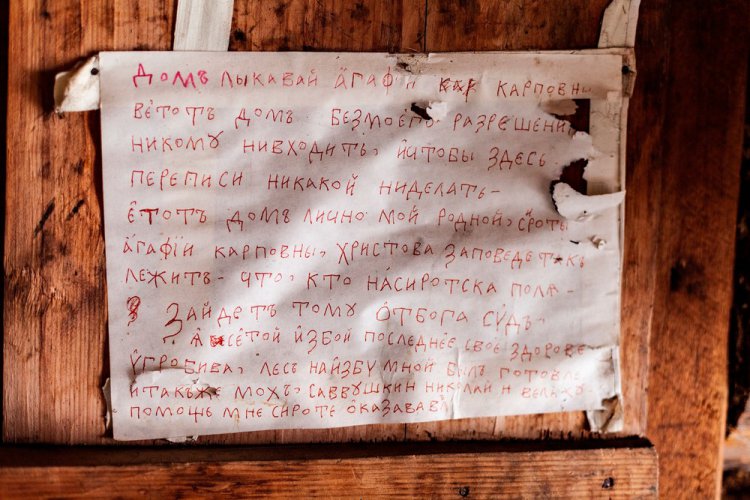 Домъ лыкавай а҆гафіи карповны
ве҆тотъ домъ безмоего разрешени
никому нивходитъ, и҆чтобы здесь
переписи никакой ниделатъ-
е҆тотъ домъ лично мой родной, си҆роты
а҆гафі́и карповны, христова заповедетакъ
лежитъ- что, кто на́сиротска поля-
зайдетъ тому о҆тбога судъ-
а҆ се҆той и҆збой последнее свое здорове
у҆гробива, лесъ наизбу мной былъ готовле
и҆такъже мохъ, саввушкин николай н
помощь мне сироте о҆казававъ